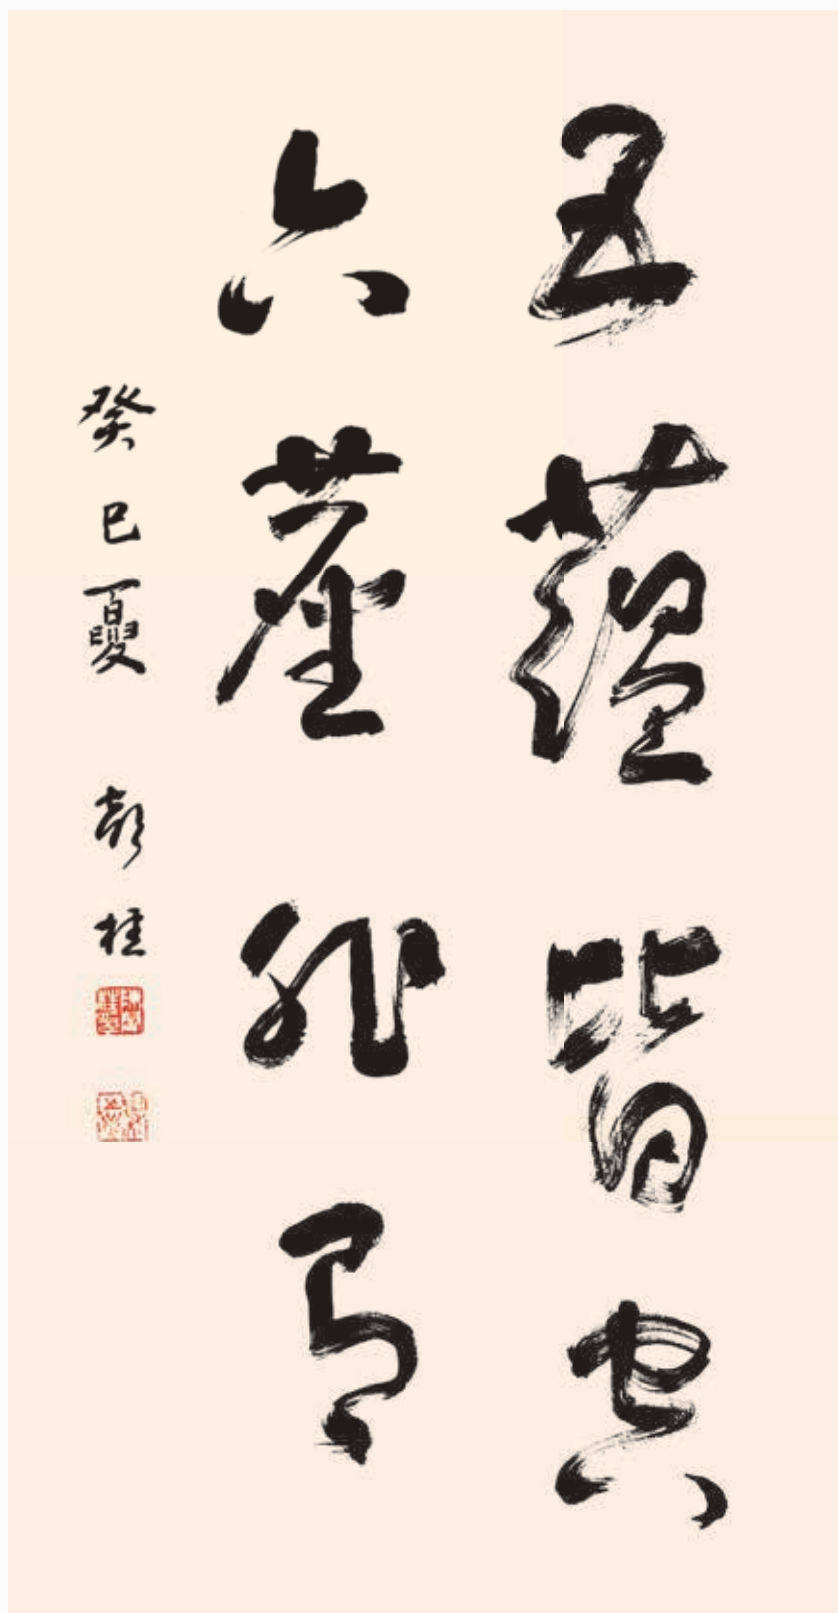 五蘊皆空
六塵非有
癸巳夏 彭